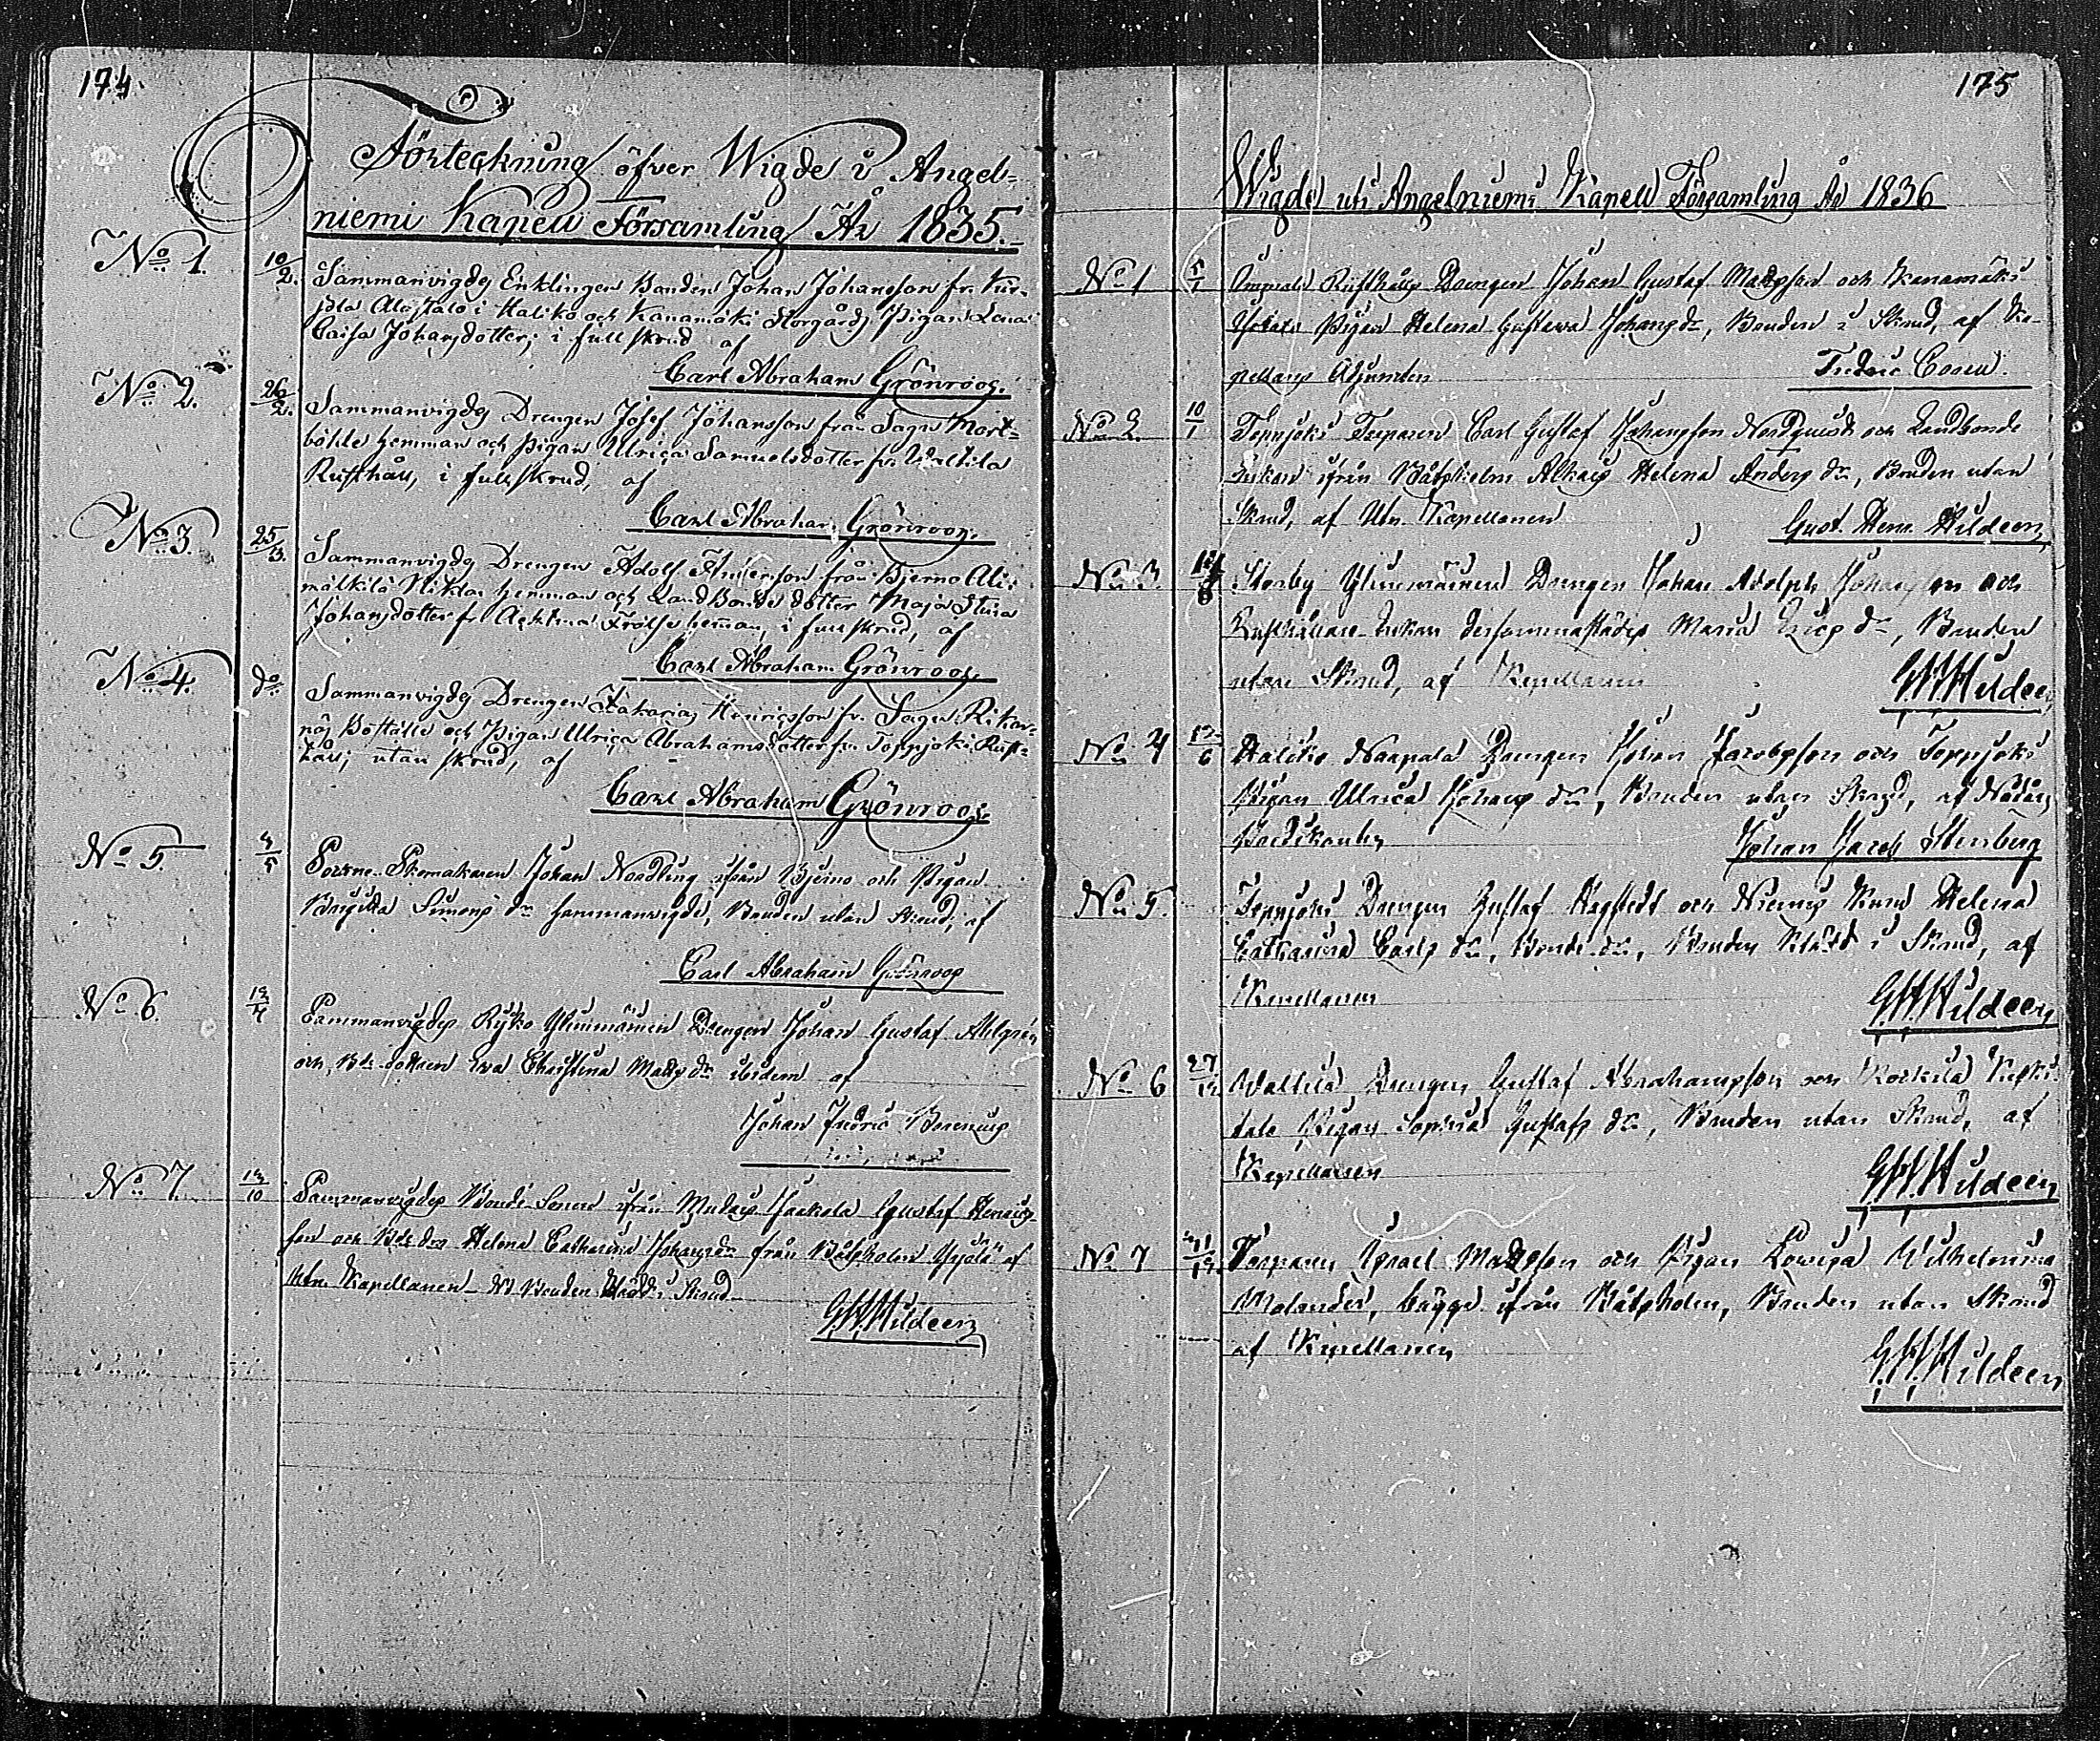 174
Förteckning öfver Wigde i Angel-
niemi Kapell Församling År 1835.
No 1. 10/2. Sammanvigdes Enklingen Bonden Johan Johansson fr.
Alastalo i Haliko och Kanamäki Storgårds Pigan Lena
Caisa Johansdotter, i full skrud af
Carl Abraham Grönroos.
No 2. 26/2. Sammanvigdes Drengen Josef Johansson från Sagu Mort-
böhle hemman och Pigan Ulrica Samuelsdotter fr. Waltila
Rusthåll, i full skrud, af
Carl Abraham Grönroos.
No 3. 25/3. Sammanvigdes Drengen Adolf Andersson från Bjerno Ali-
mälkilä Niklas hemman och Landbonde dotter Maja Stina
Johansdotter fr. Frälse heman, i full skrud, af
Carl Abraham Grönroos.
No 4. do Sammanvigdes Drengen Zakarias Henricsson fr. Sagu Rikar-
näs Boställe och Pigan Ulrica Abrahamsdotter fr. Toppjoki Rust-
håll, utan skrud, af
Carl Abraham Grönroos.
No 5. Sockne Skomakaren Johan Nordling ifrån Bjerno och Pigan
Brigitta Simons dr sammanvigde, Bruden utan skrud, af
Carl Abraham Grönroos
No 6. Sammanvigdes Ylinimäinen Drengen Johan Gustaf Ahlgren
och Bde dottren Eva Christina Matts dr ibidem af
Johan Fredric Berenius
No 7. Sammanvigdes Bonde Sonen ifrån Jaakola Gustaf Henrics-
son och Bde dra Helena Catharina Johans dr från Båtsholm Yrjölä af
Utn. Kapellanen Bruden klädd i Skrud
G.H. Hildeen
175
Wigde uti Angelniemi Kapell Församling År 1836
No 1 Rusthålls Drengen Johan Gustaf Mattsson och Kanamäki
Pigan Helena Gustava Johans dr, Bruden i Skrud, af Ka-
pellans Adjuncten Fredric
No 2 10/1 Toppjoki Torparen Carl Gustaf Johansson Nordquist och Landbonde
Enkan ifrån Båtsholm Helena Anders dr, Bruden utan
Skrud, af Utn. Kapellanen Gust. Henr. Hildeen
No 3. Storby Ylinimäinen Drengen Johan Adolph Johansson och
Rusthållare Enkan dersammastädes Maria Erics dr, Bruden
utan Skrud, af Kapellanen G.H. Hildeen
No 4 Haliko Drengen Johan Jacobsson och Toppjoki
Pigan Ulrica Johans dr, Bruden utan Skrud, af Nådårs
Predikanten Johan Jacob Stenberg
No 5. Toppjoki Drengen Gustaf Hagstedt och Helena
Catharina Carls dr, Bonde dr, Bruden klädd i Skrud, af
Kapellanen G.H. Hildeen
No 6 27/12. Waltila Drengen Gustaf Abrahamsson och Kokkila Keski-
talo Pigan Sophia Gustafs dr, Bruden utan Skrud, af
Kapellanen G.H. Hildeen
No 7 Torparen Israel Mattsson och Pigan Lovisa Wilhelmina
Melander, bägge ifrån Båtsholm, Bruden utan Skrud
af Kapellanen
G.H. Hildeen